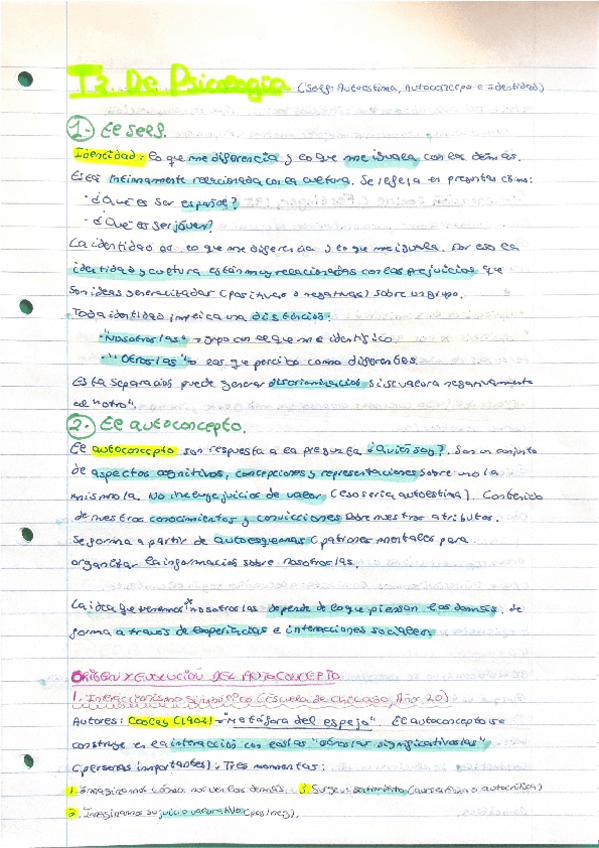 T2. De Psicología (Self: Autoestima, Autoconcepto e Identidad)
1. El self.
Identidad: Lo que me diferencia y lo que me iguala con los demás.
Está intimamente relacionada con la cultura. Se refleja en preguntas como:
· ¿Qué es ser español?
· ¿Qué es ser joven?
La identidad es lo que me diferencia y lo que me iguala. Por eso la
identidad y cultura están muy relacionadas con los prejuicios que
son ideas generalizadas (positivas o negativas) sobre un grupo.
Toda identidad implica una distinción:
· "Nosotros/as" → grupo con el que me identifico.
· "Otros/as" → los que percibo como diferentes.
Esta separación puede generar discriminación si se valora negativamente
al "otro".
2. El autoconcepto.
El autoconcepto son respuesta a la pregunta ¿Quién soy?. Son un conjunto
de aspectos cognitivos, concepciones y representaciones sobre uno/a
mismo/a. No incluye juicios de valor (eso sería autoestima). Contenido
de nuestros conocimientos y convicciones sobre nuestros atributos.
Se forma a partir de autoesquemas (patrones mentales para
organizar la información sobre nosotros/as.
La idea que tenemos nosotros/as depende de lo que piensan los demás. Se
forma a través de experiencias e interacciones sociales.
ORIGEN Y EVOLUCIÓN DEL AUTOCONCEPTO
1. Interaccionismo simbólico (Escuela de Chicago, Año 20)
Autores: Cooley (1902) → "Metáfora del espejo". El autoconcepto se
construye en la interacción con los/as "otros/as significativos/as"
(personas importantes). Tres momentos:
1. Imaginamos cómo nos ven los demás. 3. Surge un sentimiento (autoestima o autocrítica)
2. Imaginamos su juicio valorativo (pos/neg).